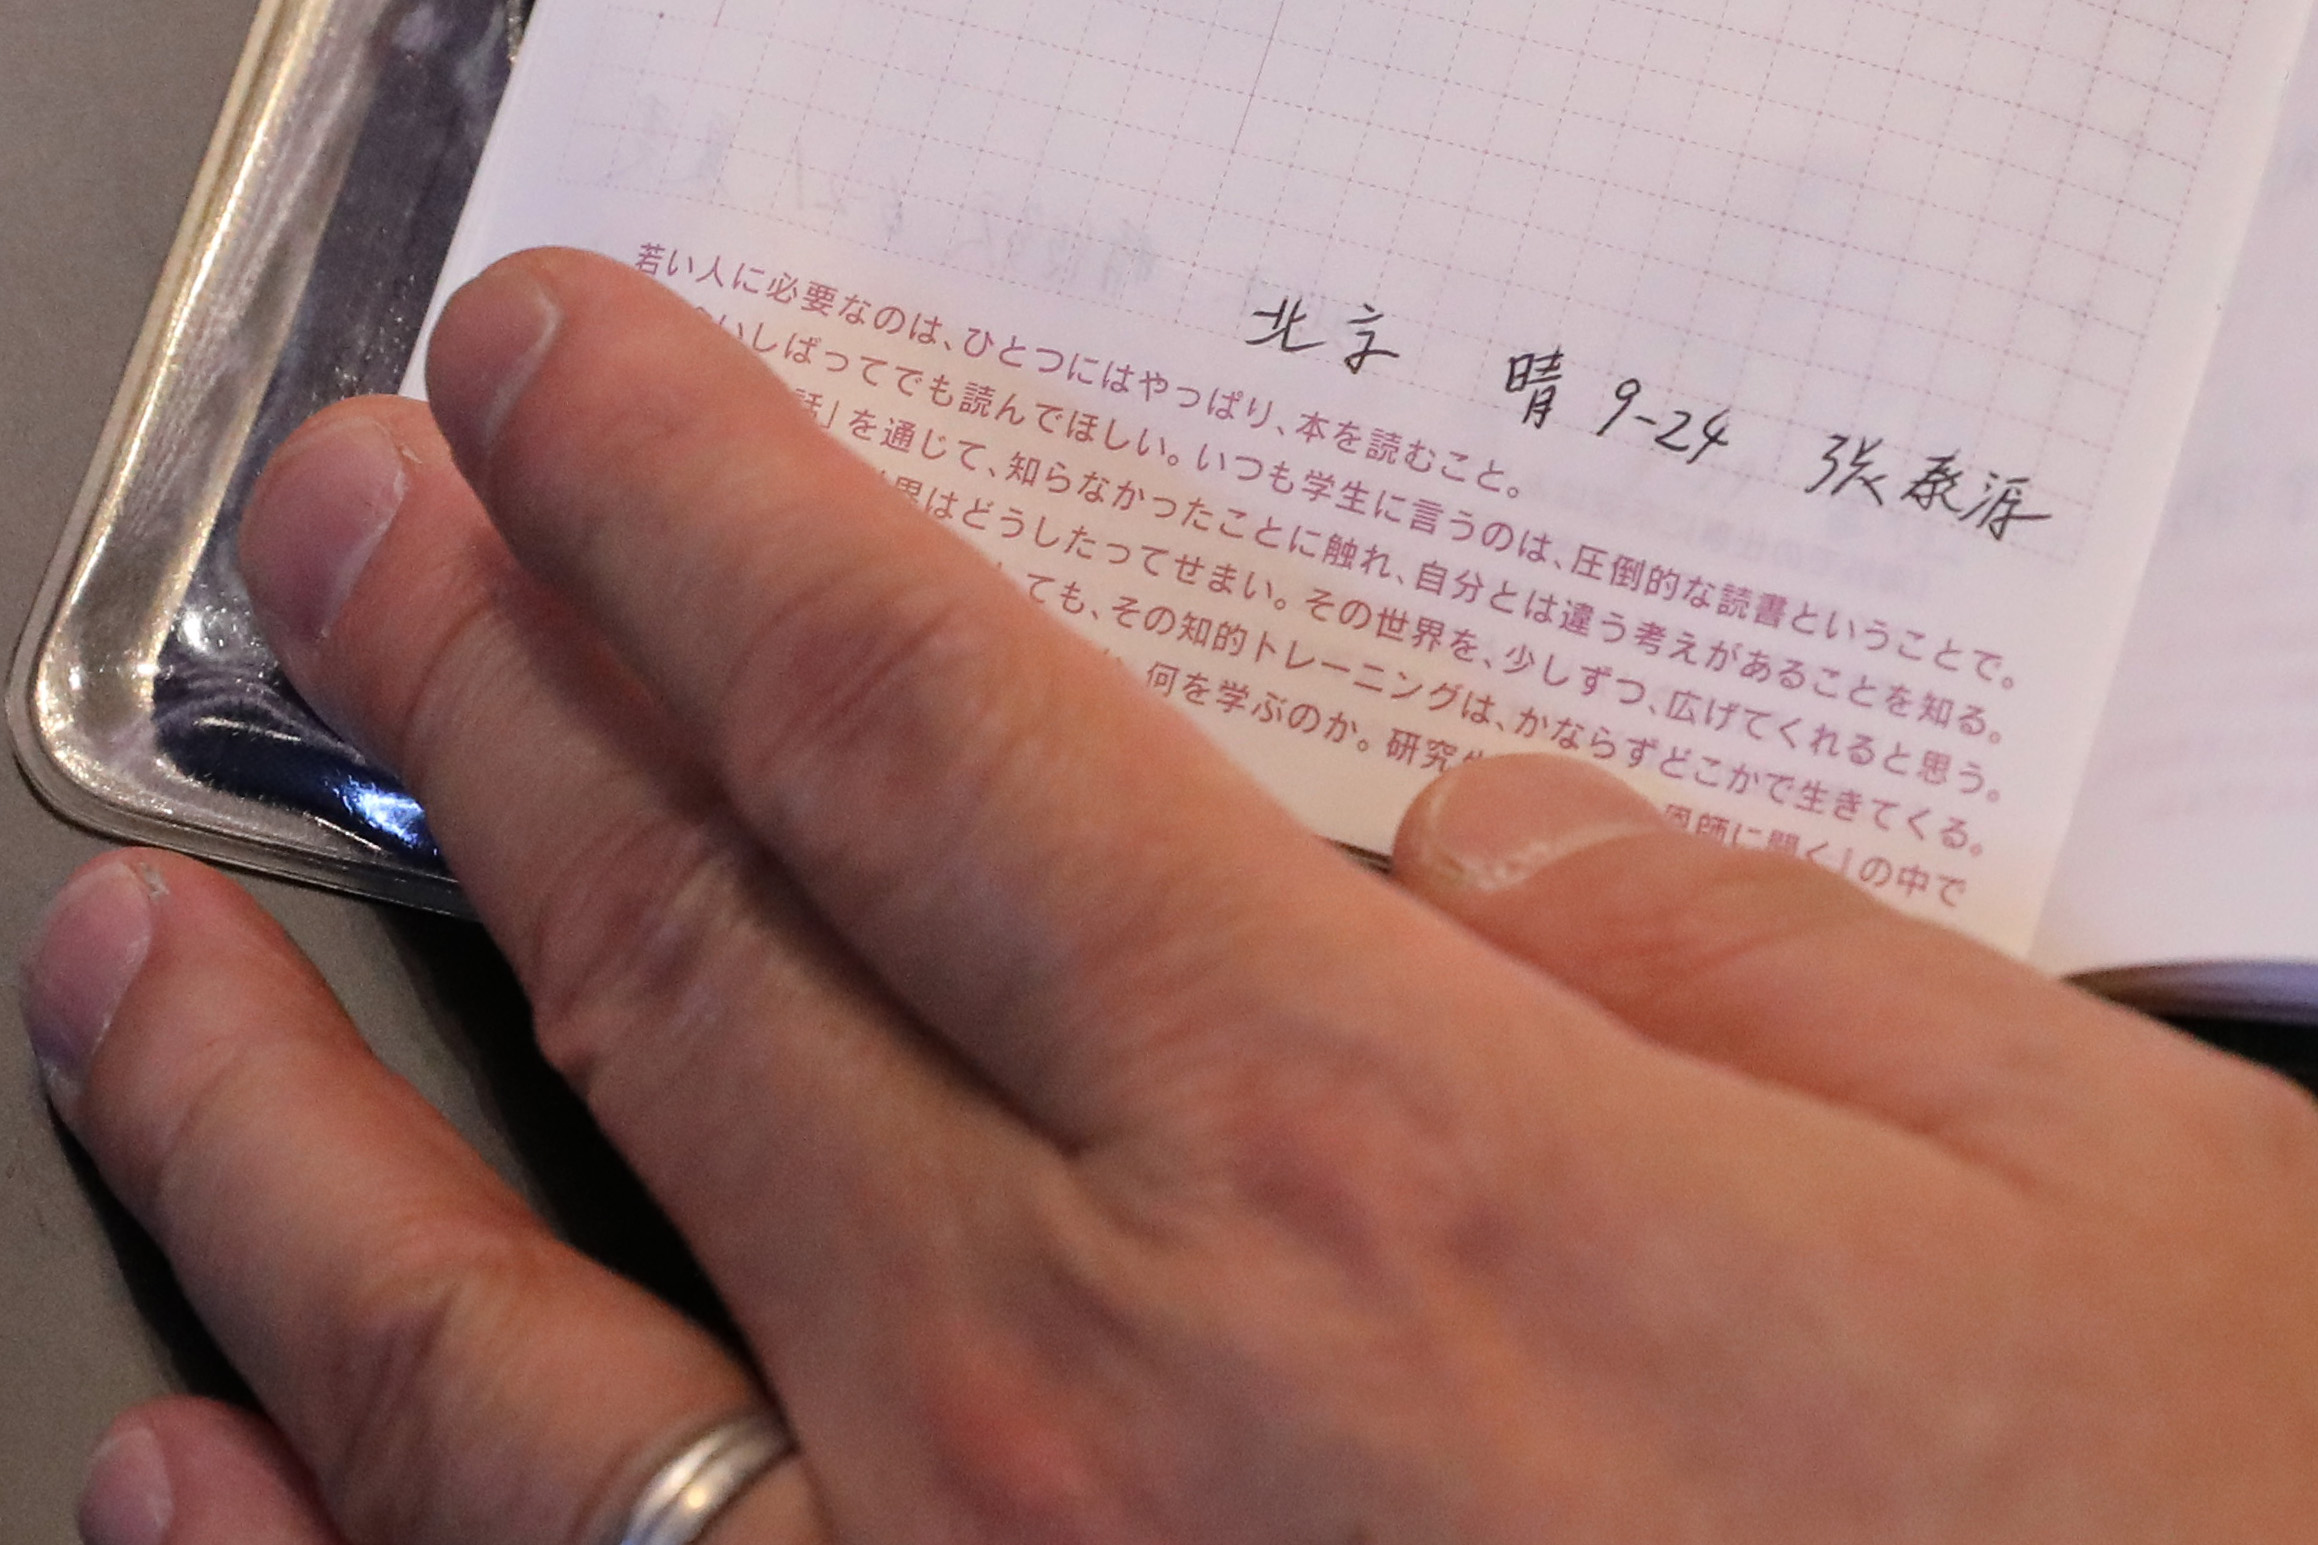 北京 晴 9-24 張泰源
若い人に必要なのは、ひとつにはやっぱり、本を読むこと。
いしばってでも読んでほしい。いつも学生に言うのは、圧倒的な読書ということで。
話」を通じて、知らなかったことに触れ、自分とは違う考えがあることを知る。
界はどうしたってせまい。その世界を、少しずつ、広げてくれると思う。
ても、その知的トレーニングは、かならずどこかで生きてくる。
何を学ぶのか。研究 恩師に聞く」の中で